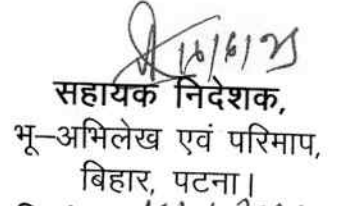 16/6/25
सहायक निदेशक,
भू–अभिलेख एवं परिमाप,
बिहार, पटना।